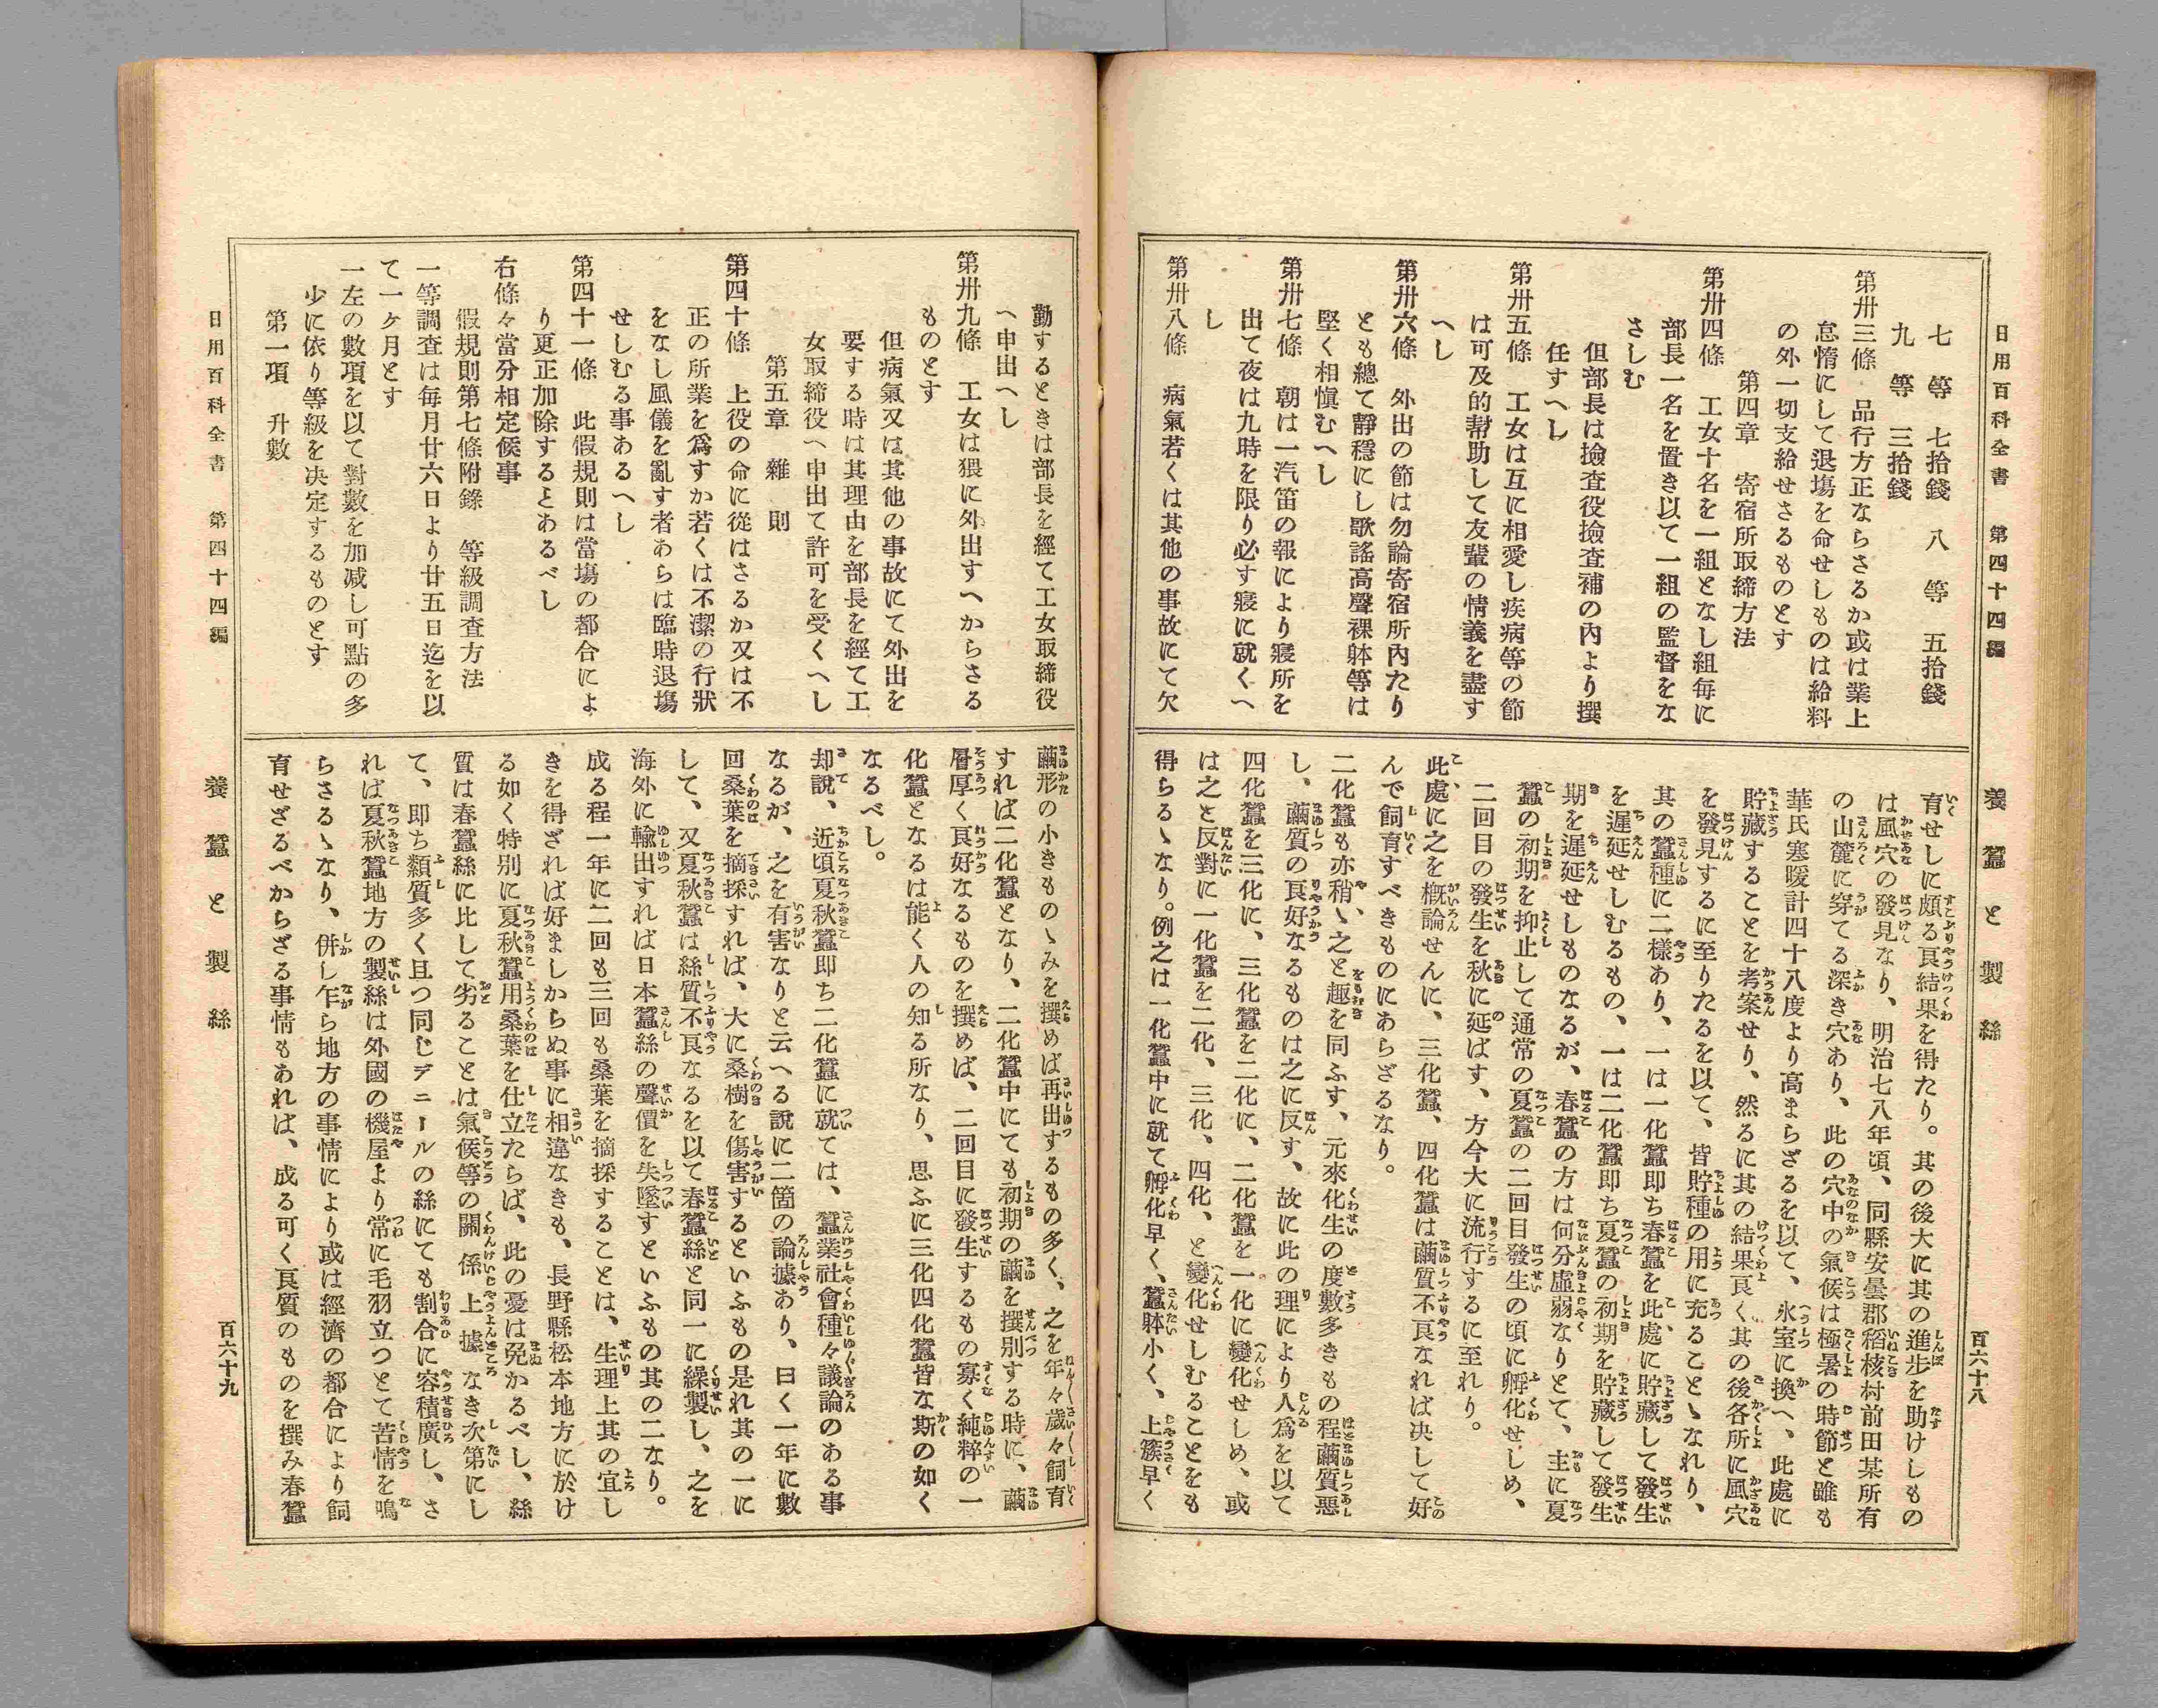 日用百科全書　第四十四編
養蠶と製絲
百六十八
七　等　七拾錢　八　等　五拾錢
九　等　三拾錢
第卅三條　品行方正ならさるか或は業上
怠惰にして退塲を命せしものは給料
の外一切支給せさるものとす
第四章　寄宿所取締方法
第卅四條　工女十名を一組となし組每に
部長一名を置き以て一組の監督をな
さしむ
但部長は撿査役撿査補の內より撰
任すへし
第卅五條　工女は互に相愛し疾病等の節
は可及的幇助して友輩の情義を盡す
へし
第卅六條　外出の節は勿論寄宿所內たり
とも總て靜穩にし歌謠高聲裸躰等は
堅く相愼むへし
第卅七條　朝は一汽笛の報により寢所を
出て夜は九時を限り必す寢に就くへ
し
第卅八條　病氣若くは其他の事故にて欠
育せしに頗る良結果を得たり。其の後大に其の進步を助けしもの
は風穴の發見なり、明治七八年頃、同縣安曇郡稻核村前田某所有
の山麓に穿てる深き穴あり、此の穴中の氣候は極暑の時節と雖も
華氏寒暖計四十八度より高まらざるを以て、氷室に換へ、此處に
貯藏することを考案せり、然るに其の結果良く其の後各所に風穴
を發見するに至りたるを以て、皆貯種の用に充ることゝなれり、
其の蠶種に二樣あり、一は一化蠶即ち春蠶を此處に貯藏して發生
を遲延せしむるもの、一は二化蠶即ち夏蠶の初期を貯藏して發生
期を遲延せしものなるが、春蠶の方は何分虛弱なりとて、主に夏
蠶の初期を抑止して通常の夏蠶の二回目發生の頃に孵化せしめ、
二回目の發生を秋に延ばす、方今大に流行するに至れり。
此處に之を槪論せんに、三化蠶、四化蠶は繭質不良なれば決して好
んで飼育すべきものにあらざるなり。
二化蠶も亦稍ゝ之と趣を同ふす、元來化生の度數多きもの程繭質惡
し、繭質の良好なるものは之に反す、故に此の理により人爲を以て
四化蠶を三化に、三化蠶を二化に、二化蠶を一化に變化せしめ、或
は之と反對に一化蠶を二化、三化、四化、と變化せしむることをも
得らるゝなり。例之は一化蠶中に就て孵化早く、蠶躰小く、上簇早く
勤するときは部長を經て工女取締役
へ申出へし
第卅九條　工女は猥に外出すへからさる
ものとす
但病氣又は其他の事故にて外出を
要する時は其理由を部長を經て工
女取締役へ申出て許可を受くへし
第五章　雜　則
第四十條　上役の命に從はさるか又は不
正の所業を爲すか若くは不潔の行狀
をなし風儀を亂す者あらは臨時退塲
せしむる事あるへし
第四十一條　此假規則は當塲の都合によ
り更正加除するとあるべし
右條々當分相定候事
假規則第七條附錄　等級調査方法
一等調査は每月廿六日より廿五日迄を以
て一ケ月とす
一左の數項を以て對數を加減し可點の多
少に依り等級を決定するものとす
第一項　升數
繭形の小きものゝみを撰めば再出するもの多く、之を年々歲々飼育
すれば二化蠶となり、二化蠶中にても初期の繭を撰別する時に、繭
層厚く良好なるものを撰めば、二回目に發生するもの寡く純粹の一
化蠶となるは能く人の知る所なり、思ふに三化四化蠶皆な斯の如く
なるべし。
却說、近頃夏秋蠶即ち二化蠶に就ては、蠶業社會種々議論のある事
なるが、之を有害なりと云へる說に二箇の論據あり、曰く一年に數
回桑葉を摘採すれば、大に桑樹を傷害するといふもの是れ其の一に
して、又夏秋蠶は絲質不良なるを以て春蠶絲と同一に繰製し、之を
海外に輸出すれば日本蠶絲の聲價を失墜すといふもの其の二なり。
成る程一年に二回も三回も桑葉を摘採することは、生理上其の宜し
きを得ざれば好ましからぬ事に相違なきも、長野縣松本地方に於け
る如く特別に夏秋蠶用桑葉を仕立たらば、此の憂は免かるべし、絲
質は春蠶絲に比して劣ることは氣候等の關係上據なき次第にし
て、即ち纇質多く且つ同じデニールの絲にても割合に容積廣し、さ
れば夏秋蠶地方の製絲は外國の機屋より常に毛羽立つとて苦情を鳴
らさるゝなり、併し乍ら地方の事情により或は經濟の都合により飼
育せざるべからざる事情もあれば、成る可く良質のものを撰み春蠶
日用百科全書　第四十四編
養蠶と製絲
百六十九